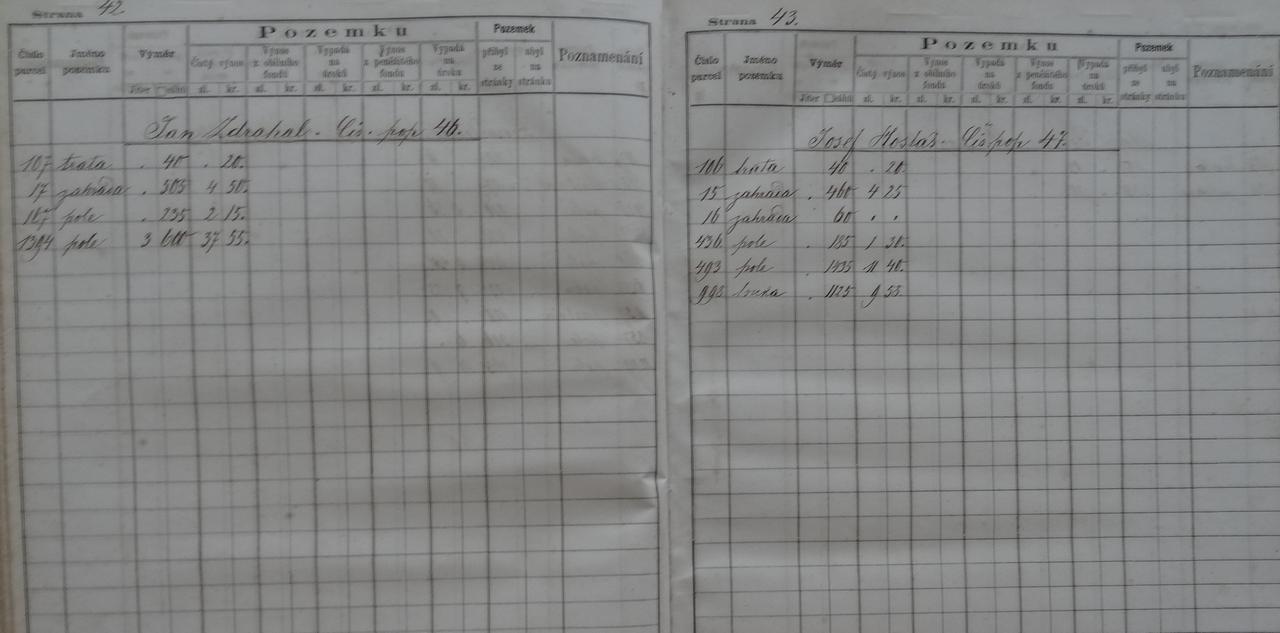 Strana 42.
Pozemku
Pozemek
Číslo parcel
Jméno pozemku
Výměr
Čistý výnos
Výnos z obilního fondu
Vypadá na úroků
Výnos z peněžitého fondu
Vypadá na úroku
přibyl ze stránky
ubyl na stránku
Poznamenání
Jiter □sáhů zl. kr. zl. kr. zl. kr. zl. kr. zl. kr.
Jan Zdrahal. Čís. pop 46.
107 trata . 40 . 20.
17 zahrada . 305 4 50.
187 pole . 235 2 15.
1394 pole 3 600 37 55.
Strana 43.
Pozemku
Pozemek
Číslo parcel
Jméno pozemku
Výměr
Čistý výnos
Výnos z obilního fondu
Vypadá na úroků
Výnos z peněžitého fondu
Vypadá na úroků
přibyl ze stránky
ubyl na stránku
Poznamenání
Jiter □sáhů zl. kr. zl. kr. zl. kr. zl. kr. zl. kr.
Josef Hostaš. Čís pop 47.
106 trata 40 . 20.
15 zahrada . 460 4 25
16 zahrada . 60 . .
436 pole . 185 1 30.
493 pole . 1435 11 40.
993 louka . 1125 9 53.